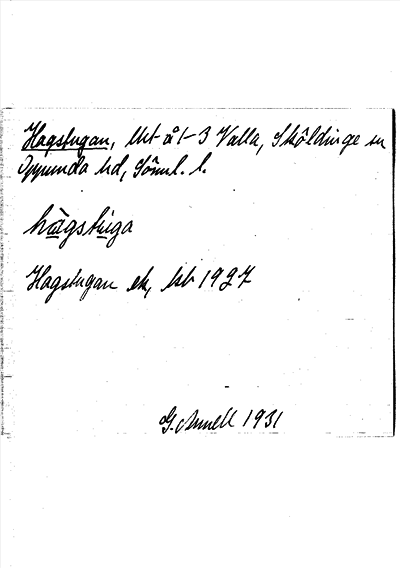 Hagstugan, lht å 1-3 Valla, Sköldinge sn
Oppunda hd, Södml. l.
hàgstuga
Hagstugan ek, lsb 1927
G. Annell 1931